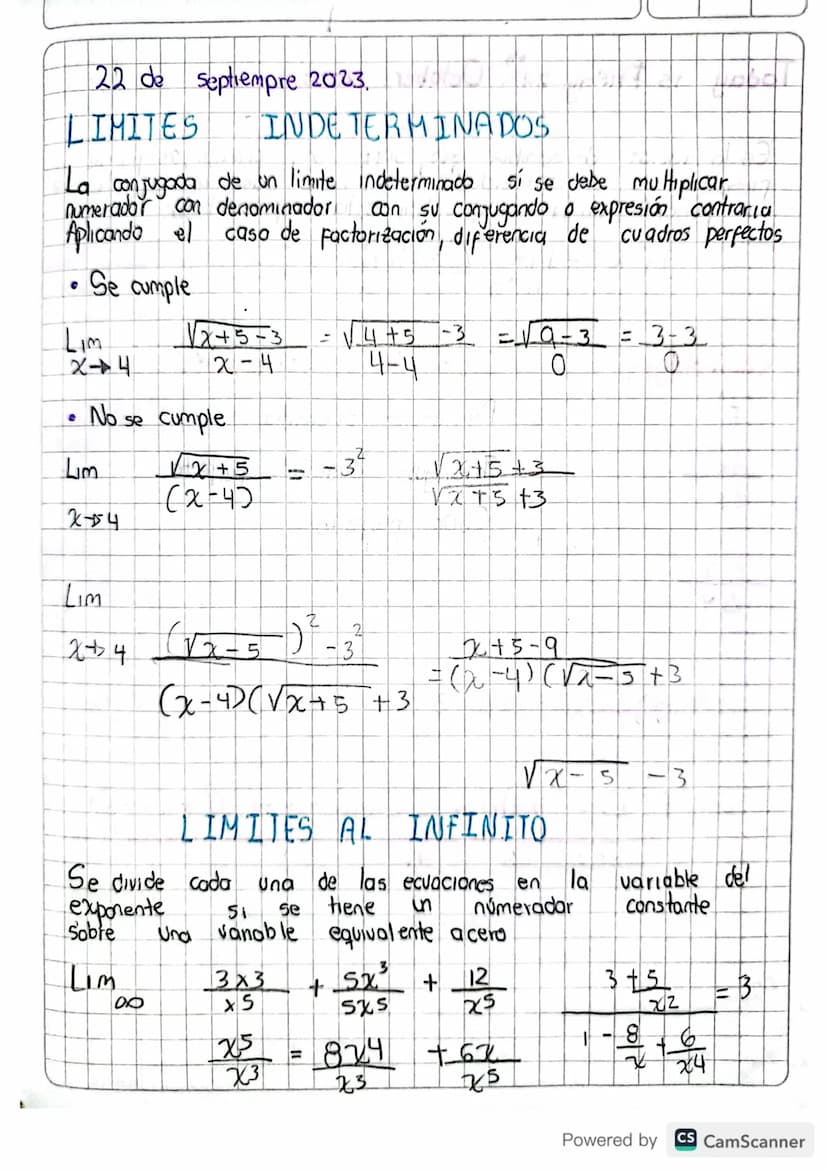 22 de septiempre 2023.
LIMITES INDETERMINADOS
La conjugada de un limite indeterminado sí se debe multiplicar
numerador con denominador con su conjugando o expresión contraria
Aplicando el caso de factorización, diferencia de cuadros perfectos
• Se cumple
Lim x→4 √x+5-3 / x-4 = √4+5 -3 / 4-4 = √9-3 / 0 = 3-3 / 0
• No se cumple
Lim x→4 √x+5 / (x-4) = -3² √x+5+3 / √x+5+3
Lim x→4 (√x-5)²-3² / (x-4)(√x+5 +3 = x+5-9 / (x-4)(√x-5+3
√x-5 -3
LIMITES AL INFINITO
Se divide cada una de las ecuaciones en la variable del
exponente si se tiene un númerador constante
sobre una vanable equivalente acero
Lim ∞ 3x3 / x5 + 5x³ / 5x5 + 12 / x5
x5 / x3 = 8x4 / x3 + 6x / x5
3+5 / x2 = 3
1 - 8 / x + 6 / x4
Powered by CS CamScanner